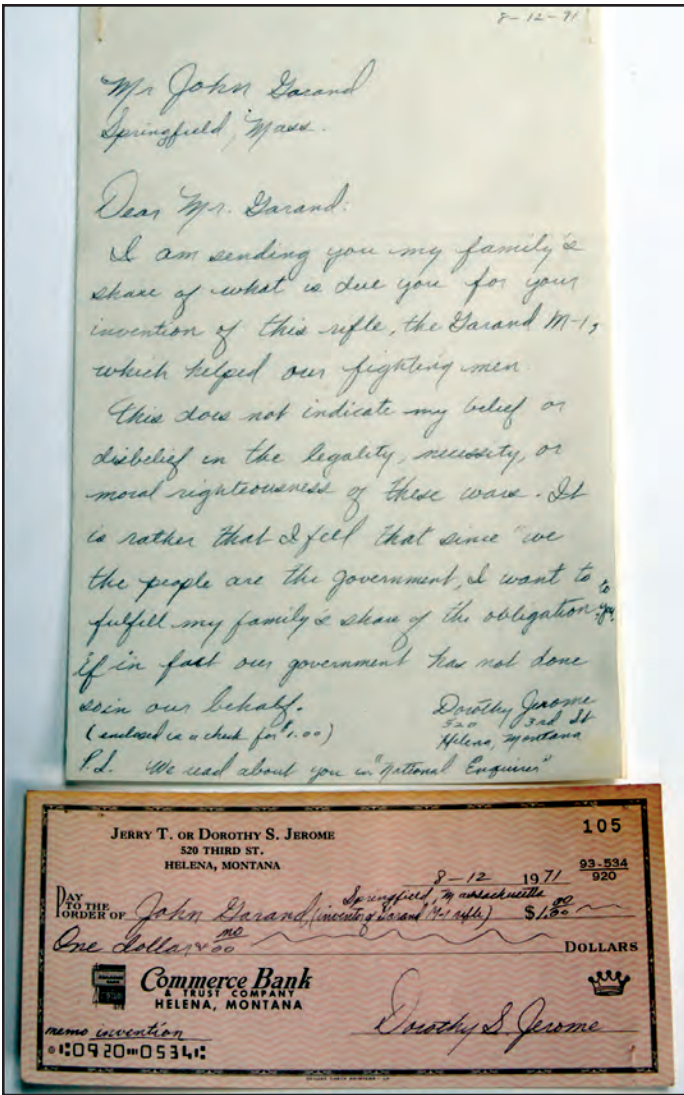 8-12-71
Mr John Garand
Springfield, Mass.
Dear Mr. Garand:
I am sending you my family's
share of what is due you for your
invention of this rifle, the Garand M-1,
which helped our fighting men.
This does not indicate my belief or
disbelief in the legality, necessity, or
moral righteousness of these wars. It
is rather that I feel that since "we
the people are the government, I want to
fulfill my family's share of the obligation to you
if in fact our government has not done
so in our behalf.
(enclosed is a check for $1.00)
Dorothy Jerome
520 3rd St
Helena, Montana
P.S. We read about you in "National Enquirer"
JERRY T. OR DOROTHY S. JEROME
520 THIRD ST.
HELENA, MONTANA
105
93-534
920
8-12 1971
PAY TO THE ORDER OF John Garand Springfield, Massachusetts (inventor of Garand M-1 rifle) $1.00
One dollar & no/00 DOLLARS
Commerce Bank
& TRUST COMPANY
HELENA, MONTANA
memo invention
Dorothy S. Jerome
⑆0920⑉0534⑆